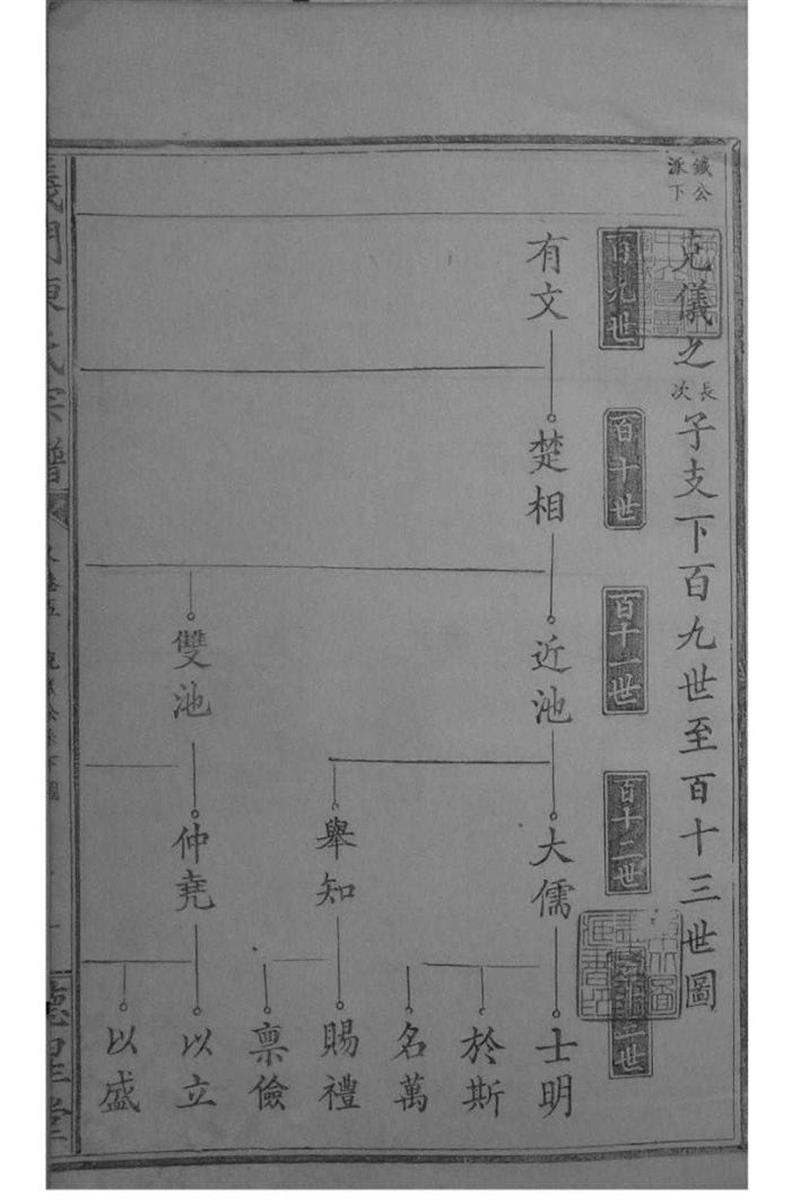 鐵公
派下
克儀之長次子支下百九世至百十三世圖
百九世
百十世
百十一世
百十二世
百十三世
有文
楚相
近池
大儒
士明
於斯
名萬
舉知
賜禮
禀儉
雙池
仲堯
以立
以盛
義門陳氏宗譜
德星堂